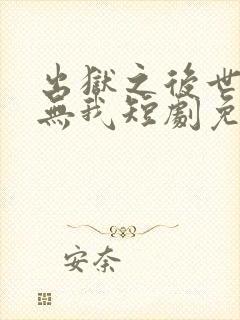 出獄之後世
無我短劇免
安奈